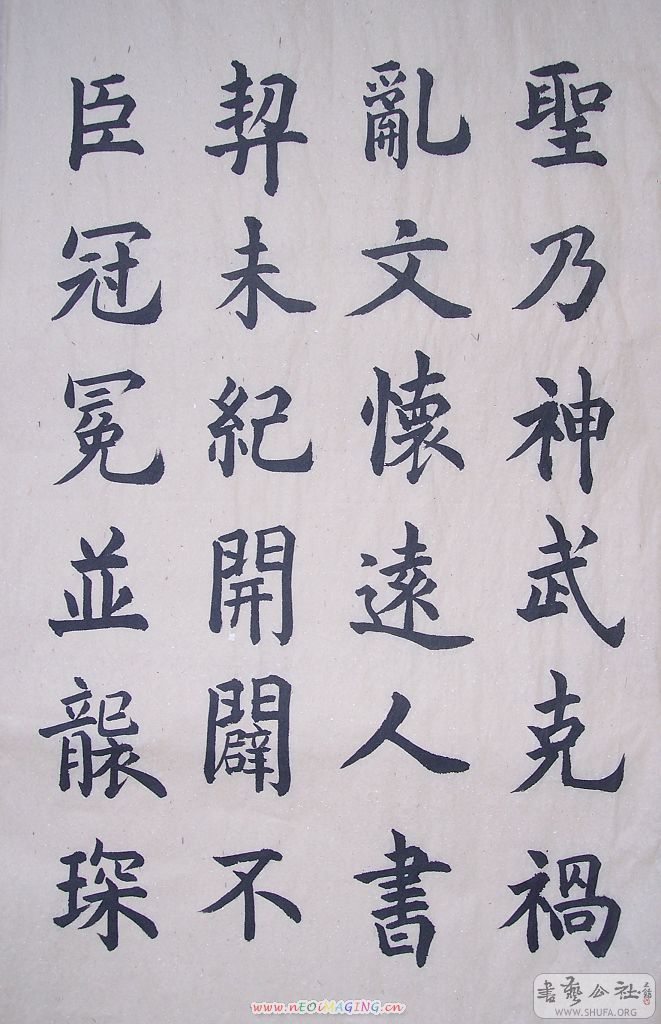 聖乃神武克禍
亂文懷遠人書
契未紀開闢不
臣冠冕並襲琛
www.nEOiMAGiNG.cn
書藝公社
WWW.SHUFA.ORG